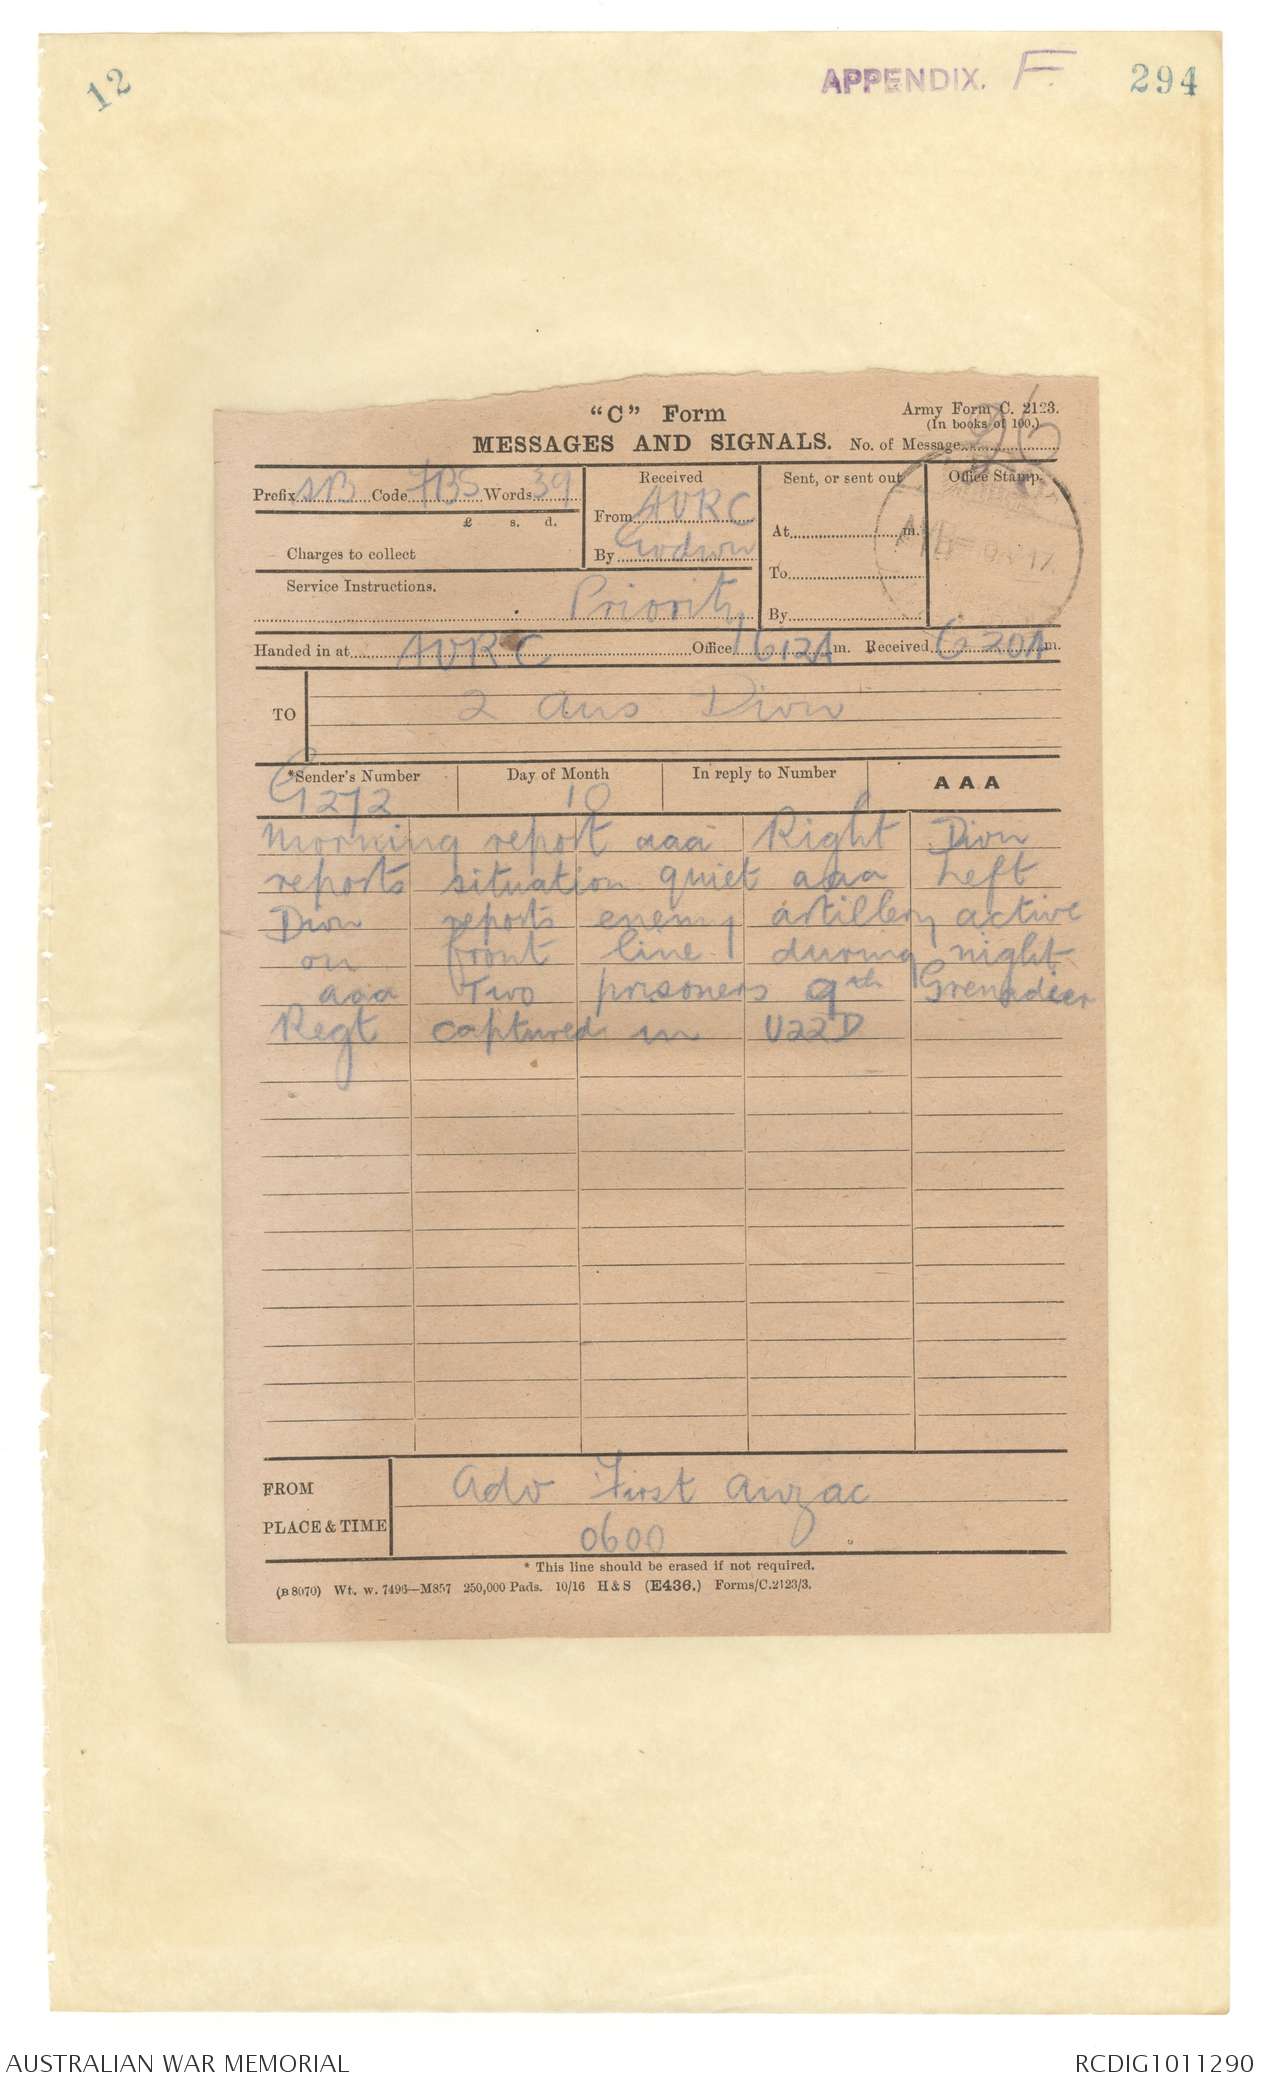 12
APPENDIX. F. 294
"C" Form
Army Form C. 2123.
(In books of 100.)
MESSAGES AND SIGNALS. No. of Message
Prefix SB Code 7BS Words 39
£ s. d.
Charges to collect
Service Instructions.
Priority
Received
From AVRC
By Godwin
Sent, or sent out
At m.
To
By
Office Stamp.
Handed in at AVRC Office 612A m. Received 6 20A m.
TO 2 Aus Divn
*Sender's Number Day of Month In reply to Number AAA
G272 10
Morning report aaa Right Divn
reports situation quiet aaa Left
Divn reports enemy artillery active
on front line during night
aaa Two prisoners 9th Grenadier
Regt captured in U22D
FROM Adv First Anzac
PLACE & TIME 0600
* This line should be erased if not required.
(B 8070) Wt. w. 7496—M857 250,000 Pads. 10/16 H & S (E436.) Forms/C.2123/3.
AUSTRALIAN WAR MEMORIAL RCDIG1011290